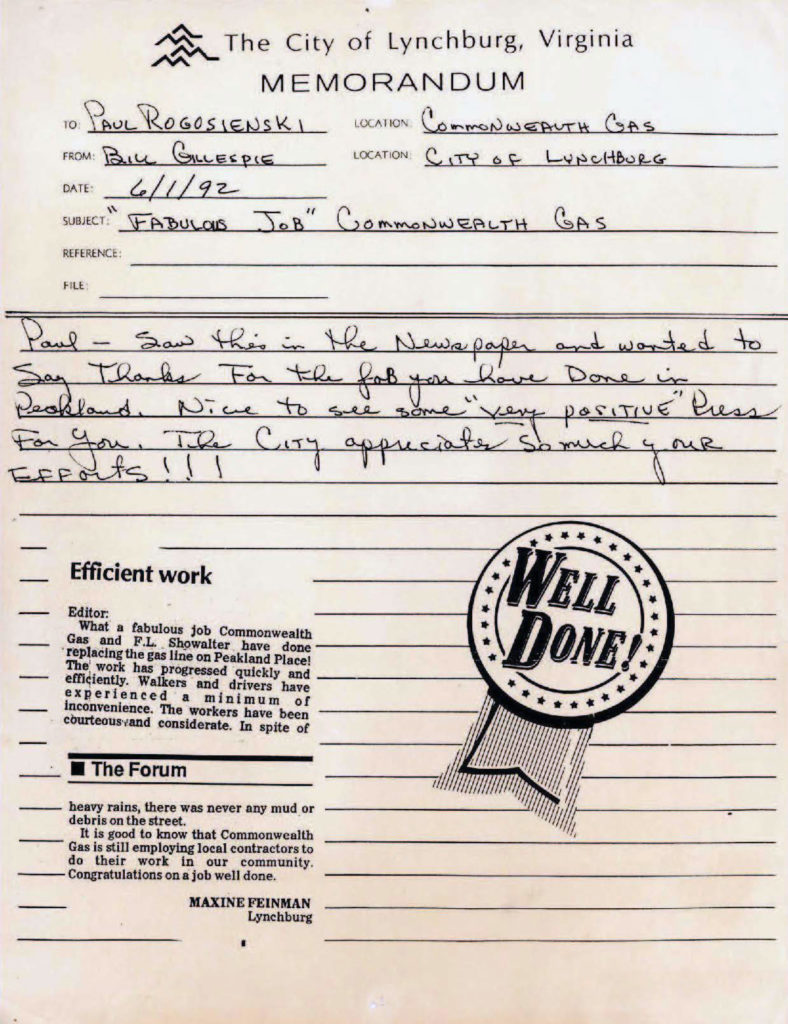 The City of Lynchburg, Virginia
MEMORANDUM
TO: PAUL ROGOSIENSKI LOCATION: COMMONWEALTH GAS
FROM: BILL GILLESPIE LOCATION: CITY OF LYNCHBURG
DATE: 6/1/92
SUBJECT: "FABULOUS JOB" COMMONWEALTH GAS
REFERENCE:
FILE:
Paul - Saw this in the Newspaper and wanted to
Say Thanks For the job you have Done in
Peakland. Nice to see some "very POSITIVE" Press
For You. The City appreciates so much your
EFFORTS!!!
Efficient work
Editor:
What a fabulous job Commonwealth
Gas and F.L. Showalter have done
replacing the gas line on Peakland Place!
The work has progressed quickly and
efficiently. Walkers and drivers have
experienced a minimum of
inconvenience. The workers have been
courteous and considerate. In spite of
The Forum
heavy rains, there was never any mud or
debris on the street.
It is good to know that Commonwealth
Gas is still employing local contractors to
do their work in our community.
Congratulations on a job well done.
MAXINE FEINMAN
Lynchburg
WELL
DONE!